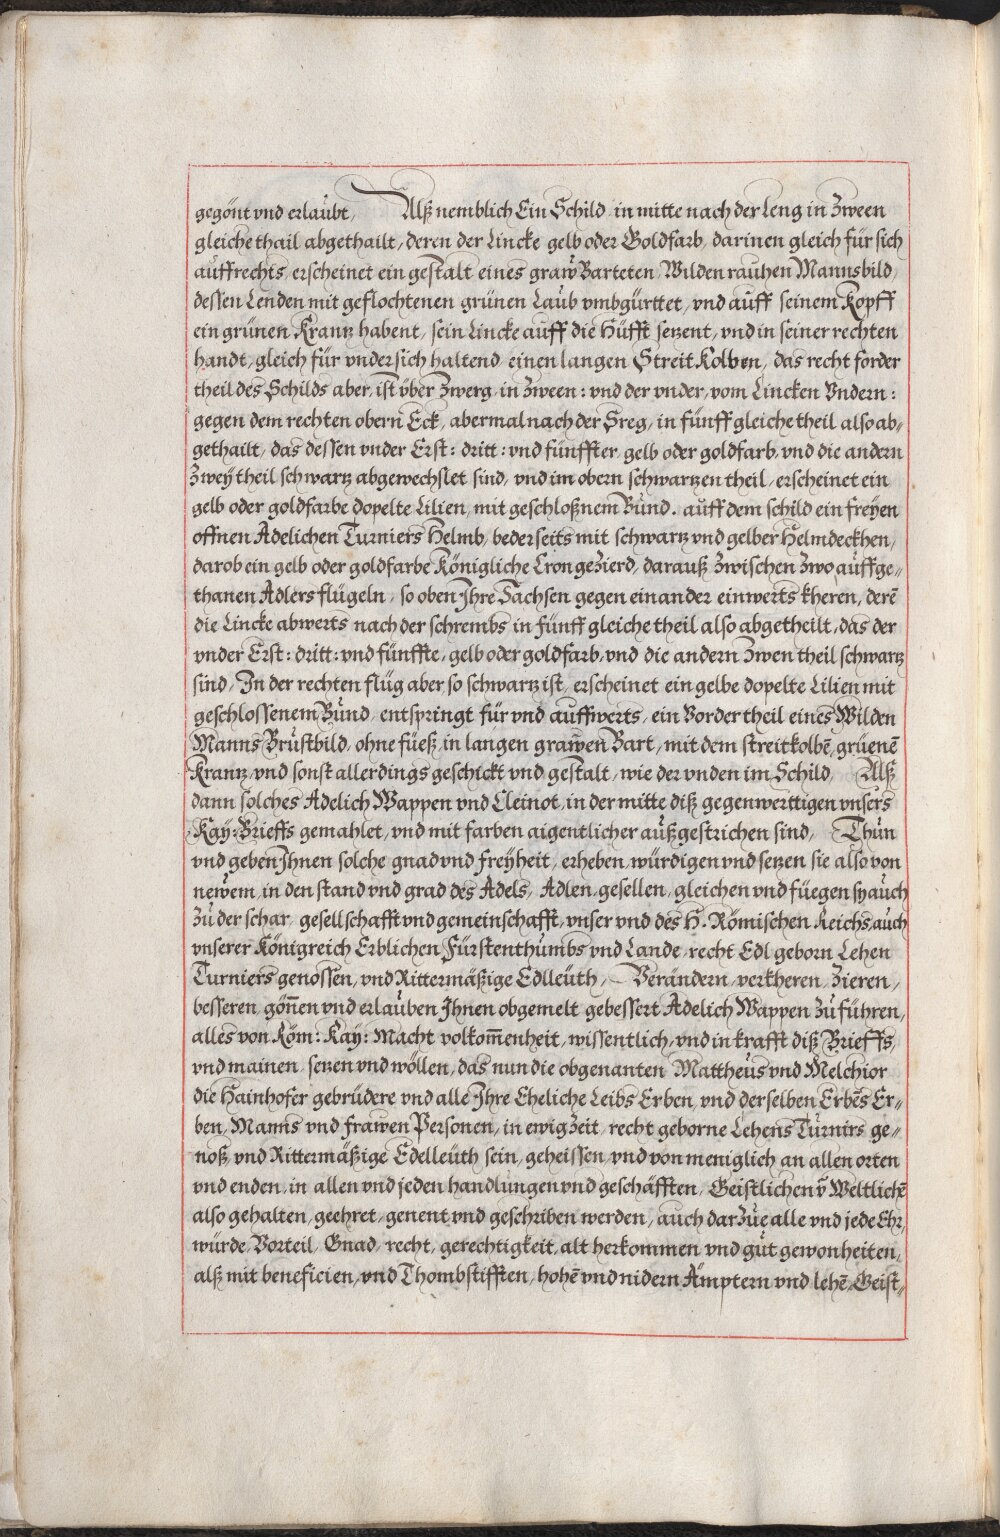 gegönt vnd erlaubt, Alß nemblich Ein Schild in mitte nach der Leng in Zween
gleiche thail abgethailt, deren der Lincke gelb oder Goldfarb, darinen gleich für sich
auffrechts erscheinet ein gestalt eines graw Barteten, Wilden rauhen Mannsbild,
dessen Lenden mit geflochtenen grünen Laub vmbgürttet, vnd auff seinem Kopff
ein grünen Krantz habent, sein Lincke auff die Hüfft setzent, vnd in seiner rechten
handt, gleich für vndersich haltend einen langen Streit Kolben, das recht forder
theil des Schilds aber, ist vber Zwerg in Zween: vnd der vnder, vom Lincken Vndern:
gegen dem rechten obern Eck, abermal nach der Sreg, in fünff gleiche theil also ab„
gethailt, das dessen vnder Erst: dritt: vnd fünffter gelb oder goldfarb, vnd die andern
Zweÿ theil schwartz abgewechslet sind, vnd im obern schwartzen theil, erscheinet ein
gelb oder goldfarbe dopelte Lilien, mit geschloßnem Bund. auff dem schild ein freÿen
offnen Adelichen Turniers Helmb, bederseits mit schwartz vnd gelber Helmdeckhen,
darob ein gelb oder goldfarbe Königliche Cron geZierd, darauß Zwischen Zwo auffge„
thanen Adlers flügeln, so oben Ihre Sachsen gegen einander einwerts kheren, derē
die Lincke abwerts nach der schrembs in fünff gleiche theil also abgetheilt, das der
vnder Erst: dritt: vnd fünffte, gelb oder goldfarb, vnd die andern Zwen theil schwartz
sind, In der rechten flüg aber, so schwartz ist, erscheinet ein gelbe dopelte Lilien mit
geschlossenem Bund, entspringt für vnd auffwerts, ein Vordertheil eines Wilden
Manns Brustbild, ohne füeß, in langen grawen Bart, mit dem streitkolbē, grüenē
Krantz, vnd sonst allerdings geschickt vnd gestalt, wie der vnden im Schild, Alß
dann solches Adelich Wappen vnd Cleinot, in der mitte diß gegenwerttigen vnsers
Kaÿ: Brieffs gemahlet, vnd mit farben aigentlicher außgestrichen sind, Thun
vnd geben Ihnen solche gnad vnd freÿheit, erheben, würdigen vnd setzen sie also von
newem, in den stand vnd grad des Adels, Adlen, gesellen, gleichen vnd füegen sÿ auch
Zu der schar, gesellschafft vnd gemeinschafft, vnser vnd des H. Römischen Reichs, auch
vnserer Königreich Erblichen Fürstenthumbs vnd Lande, recht Edl geborn Lehen
Turniers genossen, vnd Rittermäßige Edlleüth, Verändern, verkheren, Zieren,
besseren, gönnen vnd erlauben Ihnen obgemelt gebessert Adelich Wappen Zu führen,
alles von Röm: Kaÿ: Macht volkom̄enheit, wissentlich, vnd in krafft diß Brieffs,
vnd mainen, setzen vnd wöllen, das nun die obgenanten Mattheus vnd Melchior
die Hainhofer gebrüdere vnd alle Ihre Eheliche Leibs Erben, vnd derselben Erbēs Er„
ben, Manns vnd frawen Personen, in ewig Zeit, recht geborne Lehens Turnirs ge„
noß, vnd Rittermäßige Edelleüth sein, geheissen, vnd von meniglich an allen orten
vnd enden, in allen vnd jeden handlungen vnd geschäfften, Geistlichen v̄ Weltlichē
also gehalten, geehret, genent vnd geschriben werden, auch darZue alle vnd jede Ehr,
würde, Vorteil, Gnad, recht, gerechtigkeit, alt herkommen vnd gut gewonheiten,
alß mit beneficien, vnd Thombstifften, hohē vnd nidern Ämptern vnd lehē, Geist„